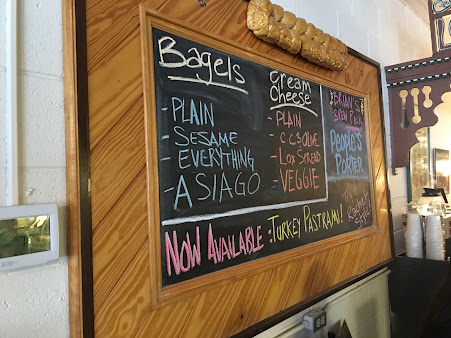 Bagels
- PLAIN
- SESAME
- EVERYTHING
- ASIAGO
cream
cheese
- PLAIN
- CC & OLIVE
- LOX SPREAD
- VEGGIE
BRIAN'S
BREW PICK
PEOPLE'S
PORTER
NOW AVAILABLE: TURKEY PASTRAMI!